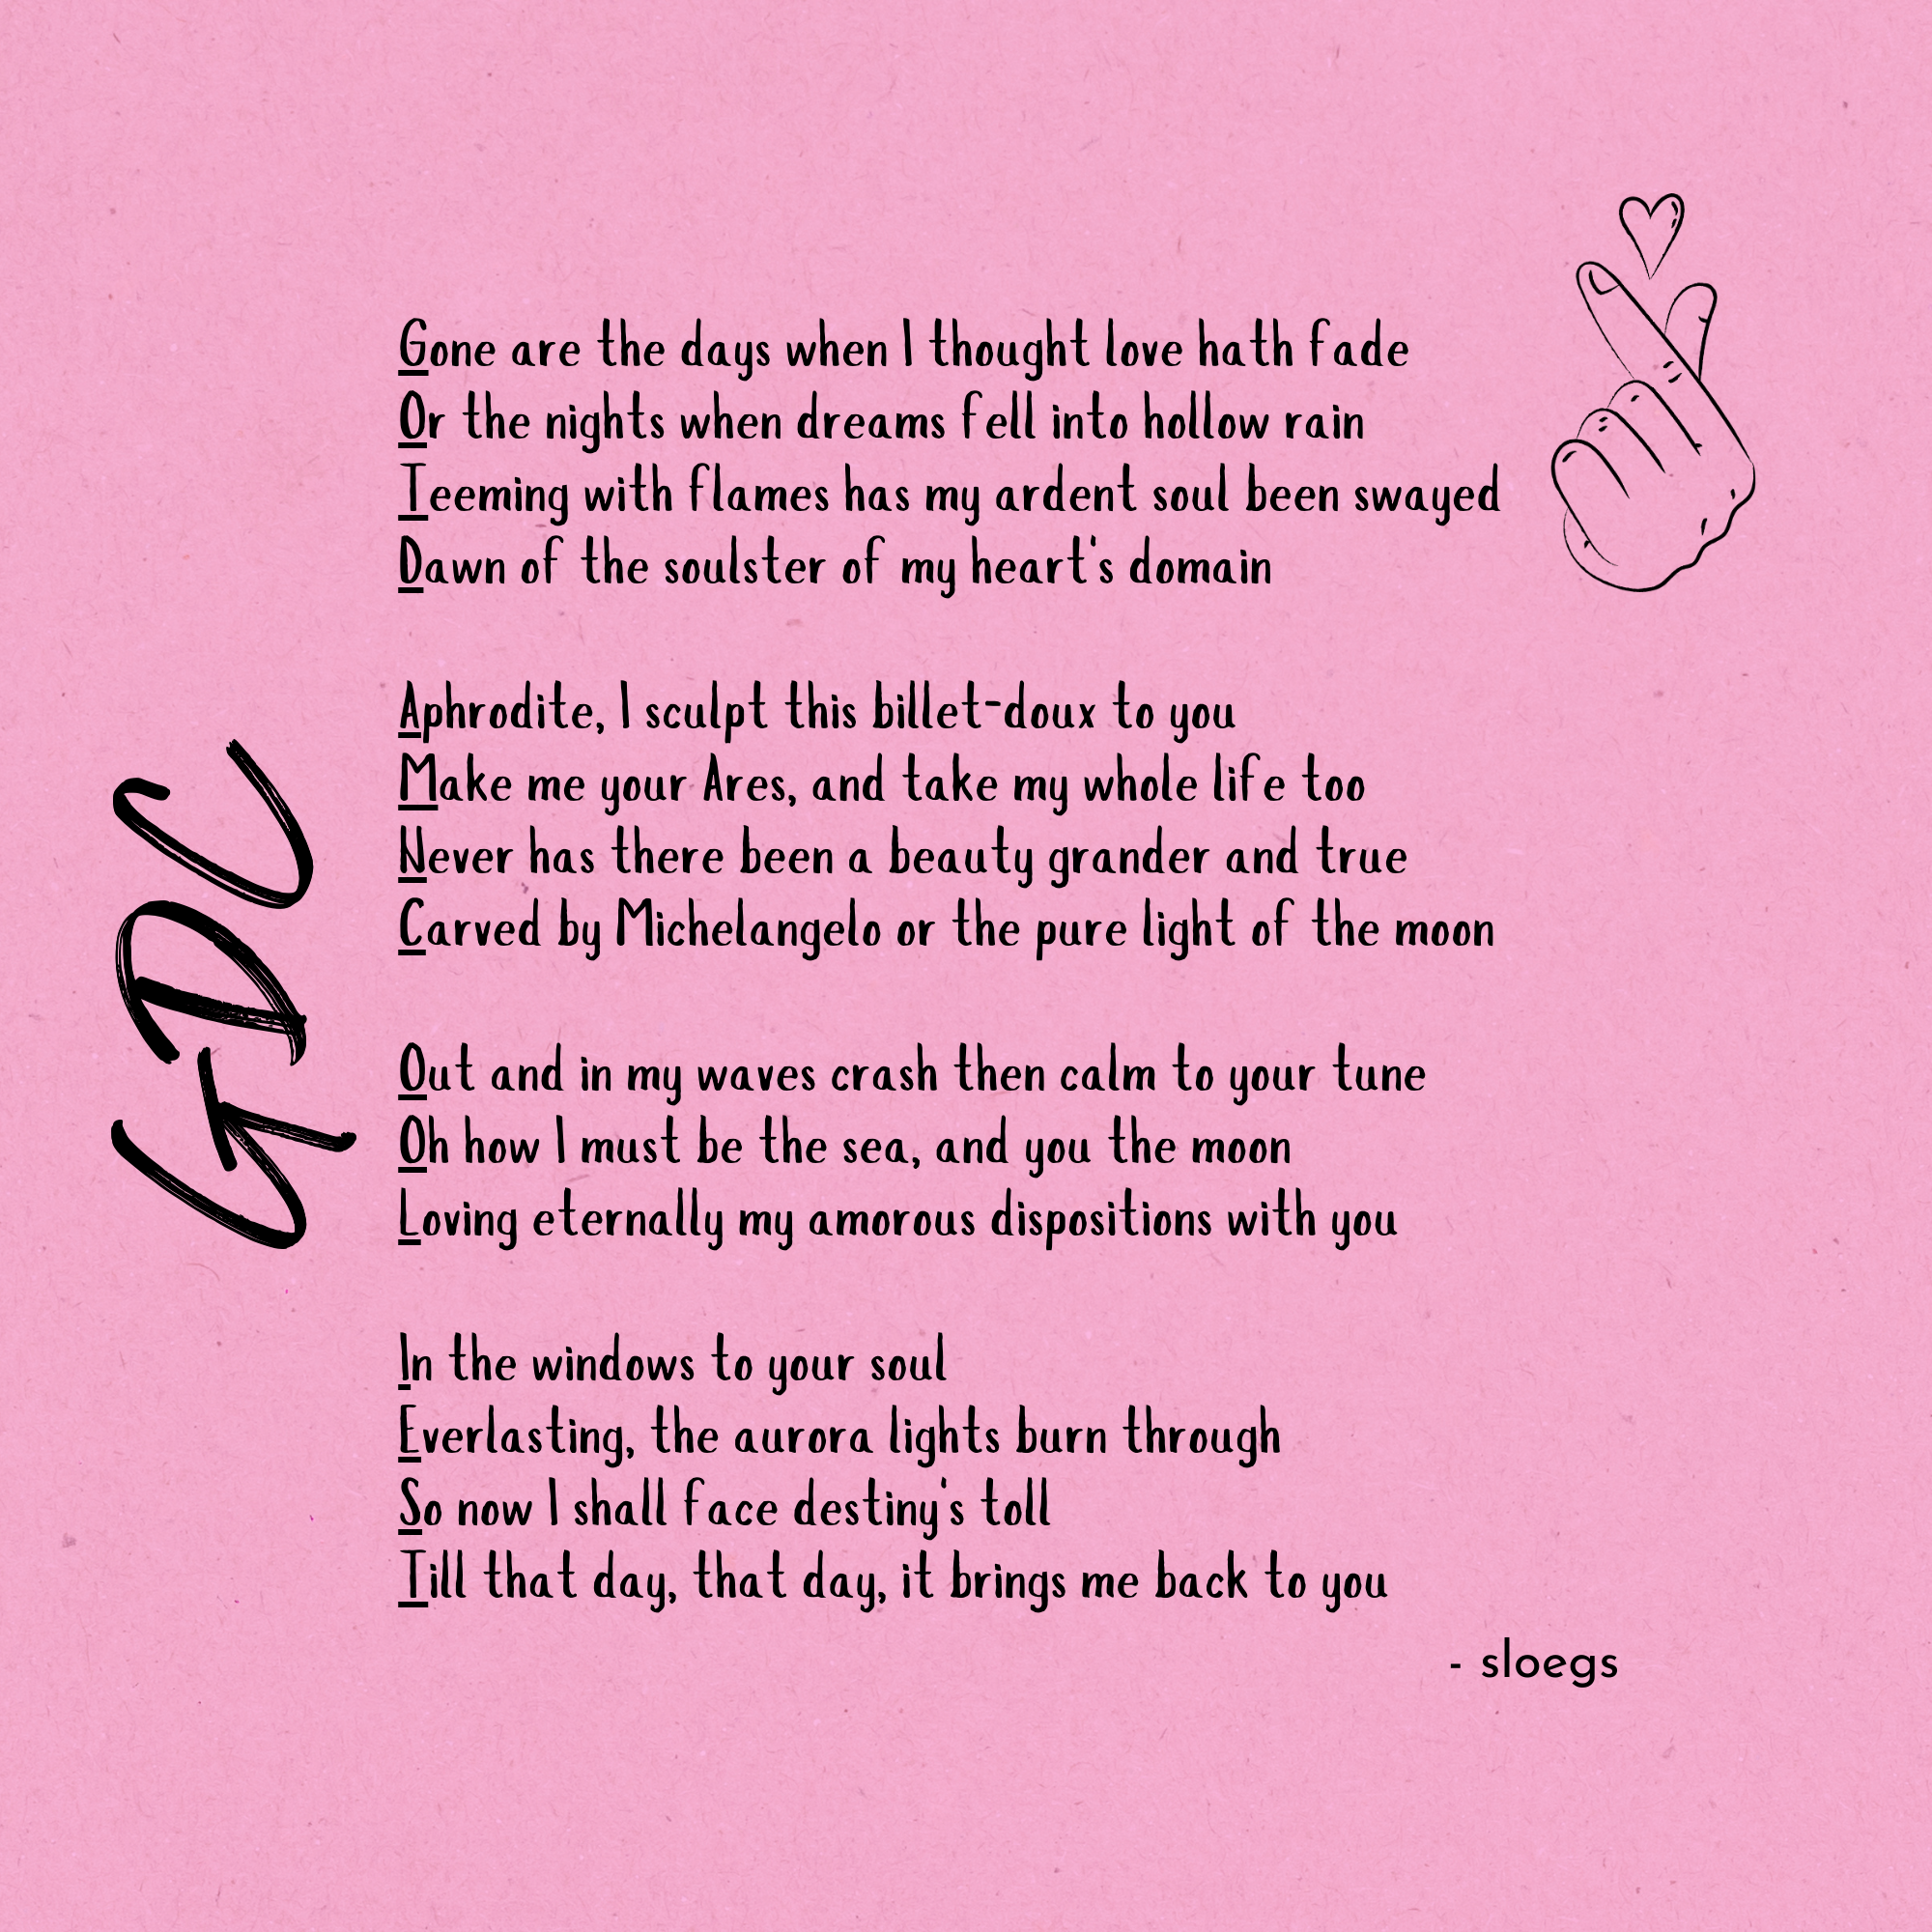 GDC
Gone are the days when I thought love hath fade
Or the nights when dreams fell into hollow rain
Teeming with flames has my ardent soul been swayed
Dawn of the soulster of my heart's domain
Aphrodite, I sculpt this billet-doux to you
Make me your Ares, and take my whole life too
Never has there been a beauty grander and true
Carved by Michelangelo or the pure light of the moon
Out and in my waves crash then calm to your tune
Oh how I must be the sea, and you the moon
Loving eternally my amorous dispositions with you
In the windows to your soul
Everlasting, the aurora lights burn through
So now I shall face destiny's toll
Till that day, that day, it brings me back to you
- sloegs